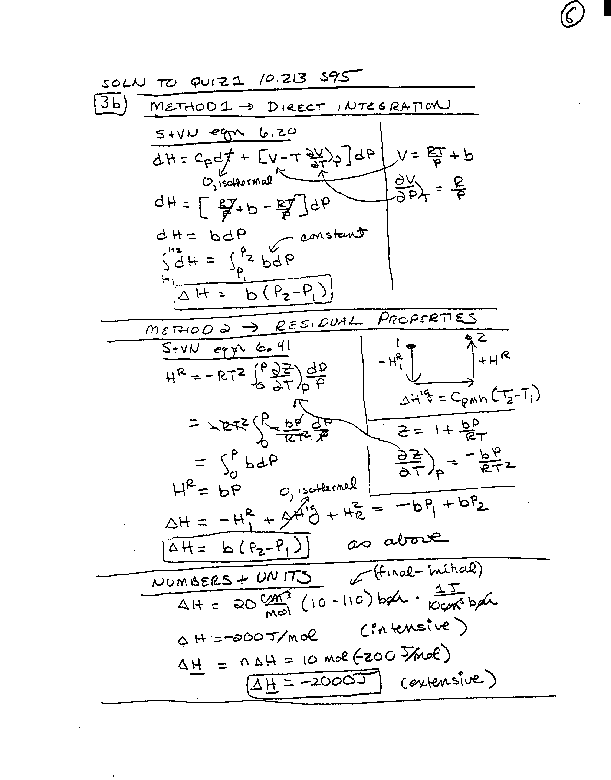 6
SOLN TO QUIZ 1 10.213 S95
3b) METHOD 1 → DIRECT INTEGRATION
S+VN eqn 6.20
dH = CpdT + [V-T ∂V/∂T)p]dP
V = RT/P + b
0, isothermal
∂V/∂P)T = R/P
dH = [RT/P + b - RT/P]dP
dH = bdP
constant
∫H1^H2 dH = ∫P1^P2 bdP
ΔH = b(P2-P1)
METHOD 2 → RESIDUAL PROPERTIES
S+VN eqn 6.41
1 2
-H1^R +H^R
H^R = -RT² ∫0^P ∂Z/∂T)p dP/P
ΔH^ig = Cpmh(T2-T1)
= -RT² ∫0^P -bP/RT² dP/P
Z = 1 + bP/RT
∂Z/∂T)p = -bP/RT²
= ∫0^P bdP
H^R = bP
0, isothermal
ΔH = -H1^R + ΔH^ig + H2^R = -bP1 + bP2
ΔH = b(P2-P1) as above
NUMBERS + UNITS
(final-initial)
ΔH = 20 cm³/mol (10-110) bar · 1J/10cm³ bar
ΔH = -200 J/mol (intensive)
ΔH = nΔH = 10 mol (-200 J/mol)
ΔH = -2000J (extensive)